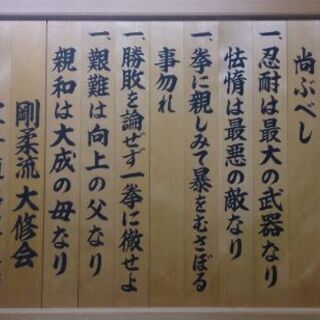 尚ぶべし
一、忍耐は最大の武器なり
怯惰は最悪の敵なり
一、拳に親しみて暴をむさぼる
事勿れ
一、勝敗を論ぜず一拳に徹せよ
一、艱難は向上の父なり
親和は大成の母なり
剛柔流大修会